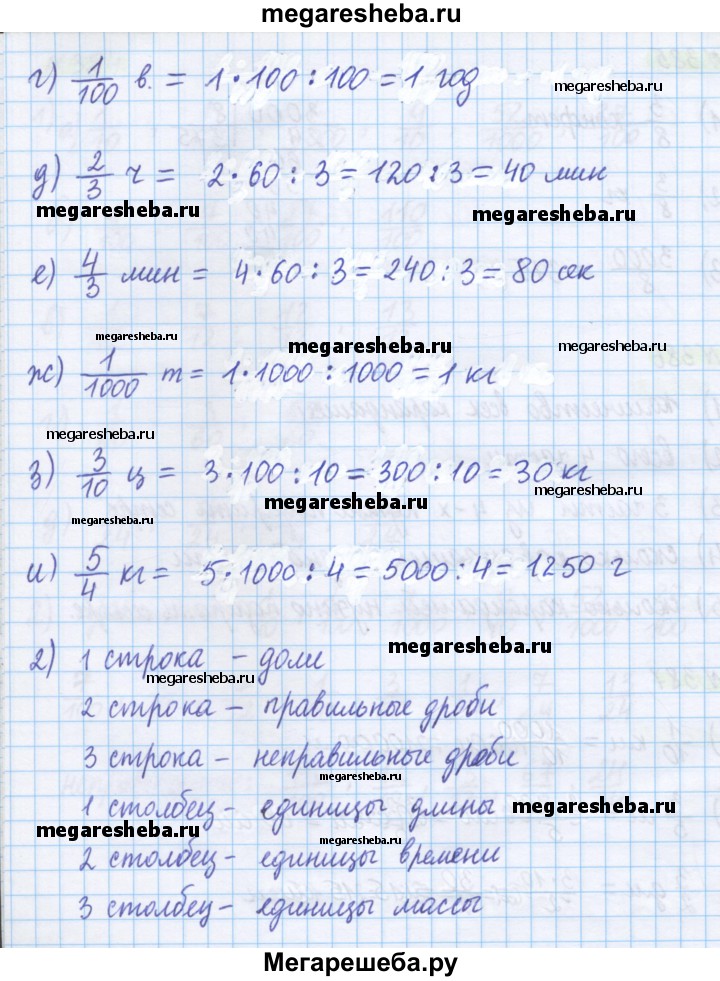 megaresheba.ru
г) 1/100 в. = 1·100:100 = 1 год
megaresheba.ru
megaresheba.ru
д) 2/3 ч = 2·60:3 = 120:3 = 40 мин
megaresheba.ru
megaresheba.ru
е) 4/3 мин = 4·60:3 = 240:3 = 80 сек
megaresheba.ru
megaresheba.ru
megaresheba.ru
ж) 1/1000 т = 1·1000:1000 = 1 кг
megaresheba.ru
megaresheba.ru
з) 3/10 ц = 3·100:10 = 300:10 = 30 кг
megaresheba.ru
megaresheba.ru
и) 5/4 кг = 5·1000:4 = 5000:4 = 1250 г
megaresheba.ru
2) 1 строка – доли
megaresheba.ru
2 строка – правильные дроби
3 строка – неправильные дроби
megaresheba.ru
1 столбец – единицы длины
megaresheba.ru
megaresheba.ru
megaresheba.ru
2 столбец – единицы времени
3 столбец – единицы массы
Мегарешеба.ру